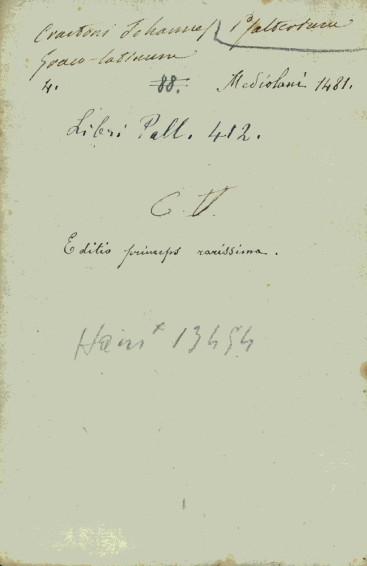 Crastoni Johannes Psalterium
Graeco-latinum
4. 88. Mediolani 1481.
Libri Pall. 412.
C. V.
Editio princeps rarissima.
Hain* 13454
1